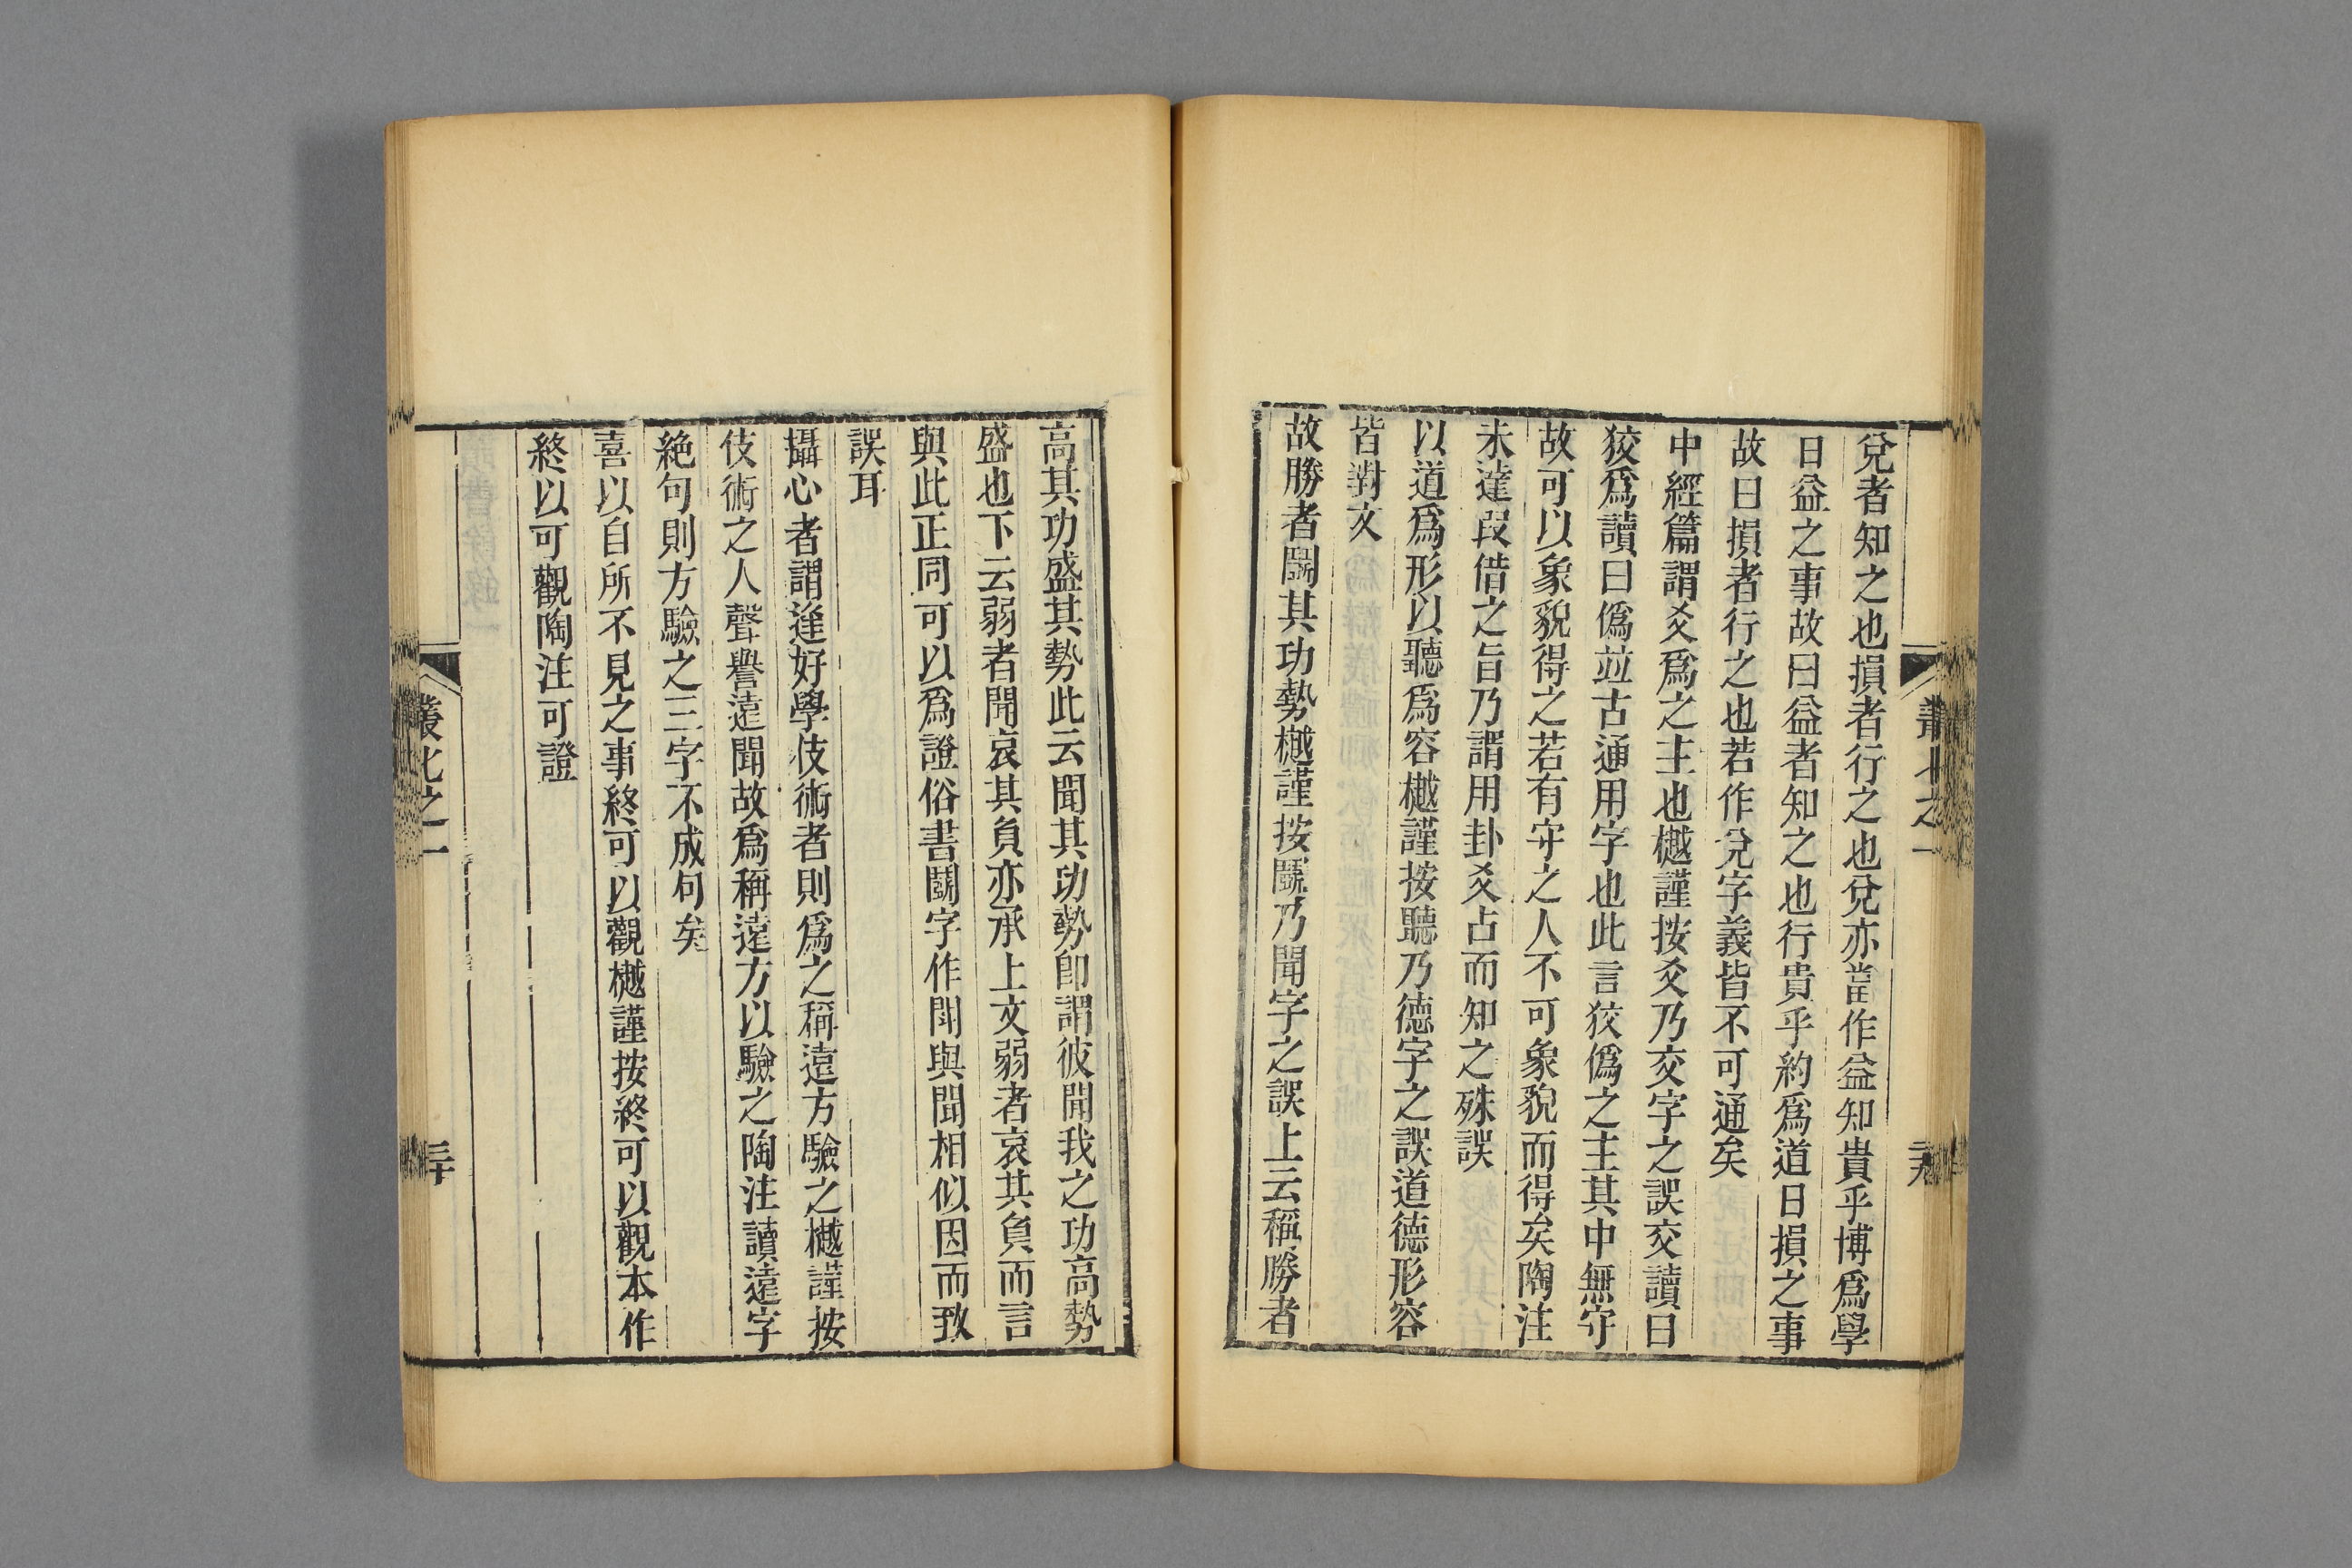 兌者知之也損者行之也兌亦當作益知貴乎博爲學
日益之事故曰益者知之也行貴乎約爲道日損之事
故曰損者行之也若作兌字義皆不可通矣
中經篇謂爻爲之主也樾謹按爻乃交字之誤交讀曰
狡爲讀曰僞竝古通用字也此言狡僞之主其中無守
故可以象貌得之若有守之人不可象貌而得矣陶注
未達叚借之旨乃謂用卦爻占而知之殊誤
以道爲形以聽爲容樾謹按聽乃德字之誤道德形容
皆對文
故勝者鬭其功勢樾謹按鬭乃聞字之誤上云稱勝者
高其功盛其勢此云聞其功勢卽謂彼聞我之功高勢
盛也下云弱者聞哀其負亦承上文弱者哀其負而言
與此正同可以爲證俗書鬭字作閗與聞相似因而致
誤耳
攝心者謂逢好學伎術者則爲之稱遠方驗之樾謹按
伎術之人聲譽遠聞故爲稱遠方以驗之陶注讀遠字
絶句則方驗之三字不成句矣
喜以自所不見之事終可以觀樾謹按終可以觀本作
終以可觀陶注可證
叢北之一
三十